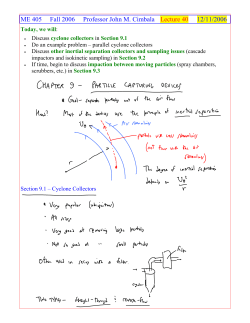 ME 405 Fall 2006 Professor John M. Cimbala Lecture 40 12/11/2006
Today, we will:
• Discuss cyclone collectors in Section 9.1
• Do an example problem – parallel cyclone collectors
• Discuss other inertial separation collectors and sampling issues (cascade
impactors and isokinetic sampling) in Section 9.2
• If time, begin to discuss impaction between moving particles (spray chambers,
scrubbers, etc.) in Section 9.3
CHAPTER 9 - PARTICLE CAPTURING DEVICES
• Goal - separate particles out of the air flow
How? Most of the devices use the principle of inertial separation
Uθ
Air streamlines
particle will cross streamlines
(not flow with the air streamlines)
r
The degree of inertial separation
depends on Uθ²/r
Section 9.1 – Cyclone Collectors
• Very popular (ubiquitous)
- All sizes
- Very good at removing large particles
- Not so good at — small particles
Often used in series with a filter
filter
cyclone
Two types - straight-through & reverse-flow